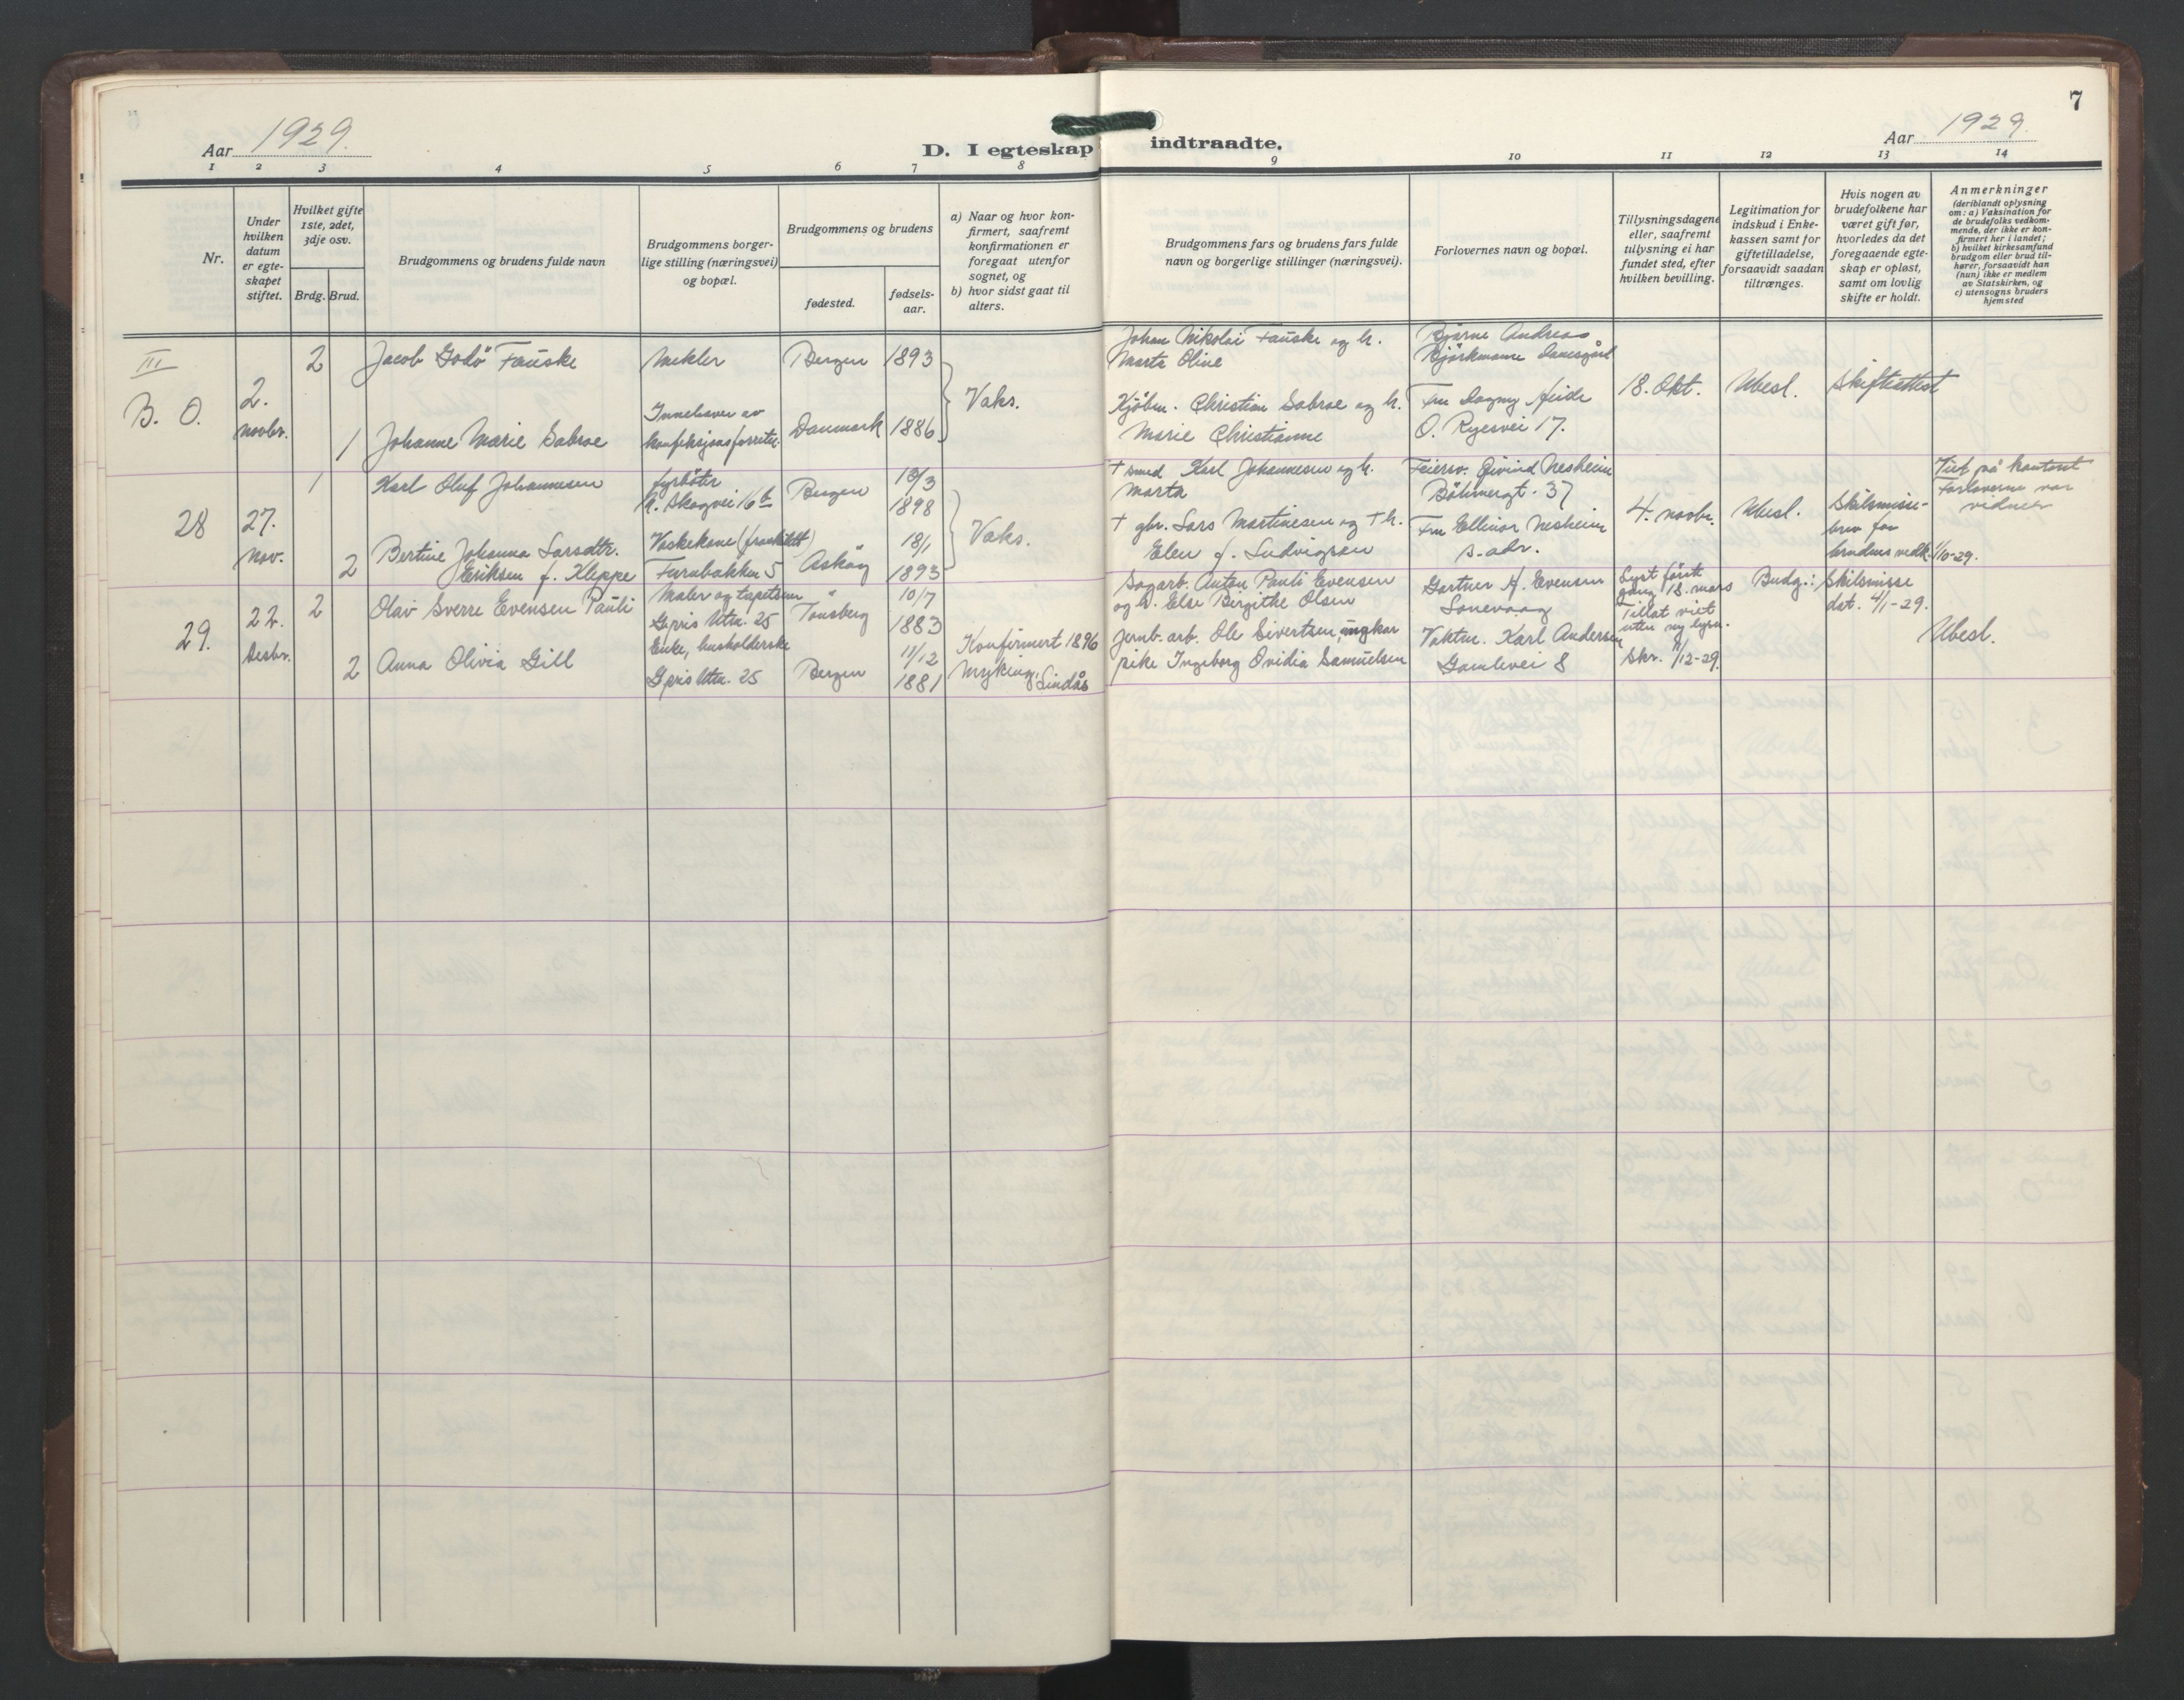 7
Aar 1929.
D. I egteskap indtraadte.
Aar 1929.
1 2 3 4 5 6 7 8 9 10 11 12 13 14
Nr.
Under
hvilken
datum
er egte-
skapet
stiftet.
Hvilket gifte
1ste, 2det,
3dje osv.
Brdg. Brud.
Brudgommens og brudens fulde navn
Brudgommens borger-
lige stilling (næringsvei)
og bopæl.
Brudgommens og brudens
fødested.
fødsels-
aar.
a) Naar og hvor kon-
firmert, saafremt
konfirmationen er
foregaat utenfor
sognet, og
b) hvor sidst gaat til
alters.
Brudgommens fars og brudens fars fulde
navn og borgerlige stillinger (næringsvei).
Forlovernes navn og bopæl.
Tillysningsdagene
eller, saafremt
tillysning ei har
fundet sted, efter
hvilken bevilling.
Legitimation for
indskud i Enke-
kassen samt for
giftetilladelse,
forsaavidt saadan
tiltrænges.
Hvis nogen av
brudefolkene har
været gift før,
hvorledes da det
foregaaende egte-
skap er opløst,
samt om lovlig
skifte er holdt.
Anmerkninger
(deriblandt oplysning
om: a) Vaksination for
de brudefolks vedkom-
mende, der ikke er kon-
firmert her i landet;
b) hvilket kirkesamfund
brudgom eller brud til-
hører, forsaavidt han
(hun) ikke er medlem
av Statskirken, og
c) utensogns bruders
hjemsted
III
B. O.
2.
novbr.
2
Jacob Godö Fauske
Mekler
Bergen
1893
1
Johanne Marie Sabroe
Innehaver av
konfeksjonsforretn.
Danmark
1886
Vaks.
Johan Nikolai Fauske og h.
Marta Oline
Kjöbm. Christian Sabroe og h.
Marie Christianne
Bjarne Andreas
Fru Dagny Heide
O. Ryesvei 17.
18. Okt.
Ubesl.
Skifteattest
28
27.
nov.
1
Karl Oluf Johannesen
fyrböter
N. Skogvei 16 b
Bergen
13/3
1898
2
Bertine Johanna Larsdtr.
Eriksen f. Kleppe
Vaskekone (fraskilt)
Furubakken 5
Asköy
18/1
1893
Vaks.
† smed Karl Johannesen og h.
Marta
† gbr. Lars Martinesen og † h.
Elen f. Ludvigsen
Feiersv. Øivind Nesheim
Böhmergt. 37
Fru Ellinor Nesheim
s. adr.
4. novbr.
Ubesl.
Skilsmisse-
brev for
brudens vedk. 1/10-29.
Viet på kontoret
Forloverne var
vidner
29.
22.
Desbr.
2
Olav Sverre Evensen Pauli
Maler og tapetserer
Gjris Utsn. 25
Tönsberg
10/7
1883
2
Anna Olivia Gill
Enke, husholderske
Gjris Utsn. 25
Bergen
11/12
1881
Konfirmert 1896
Myking, Lindås
Sagarb. Anton Pauli Evensen
og h. Else Birgithe Olsen
Jernb. arb. Ole Sivertsen, ungkar
pike Ingeborg Ovidia Samuelsen
Gartner H. Evensen
Lonevaag
Vaktm. Karl Andersen
Gamlevei 8
Lyst förste
gang 18. mars
Tillat viet
uten ny lysn.
Skr. 7/12-29.
Budg.: Skilsmisse
dat. 4/1-29.
Ubesl.